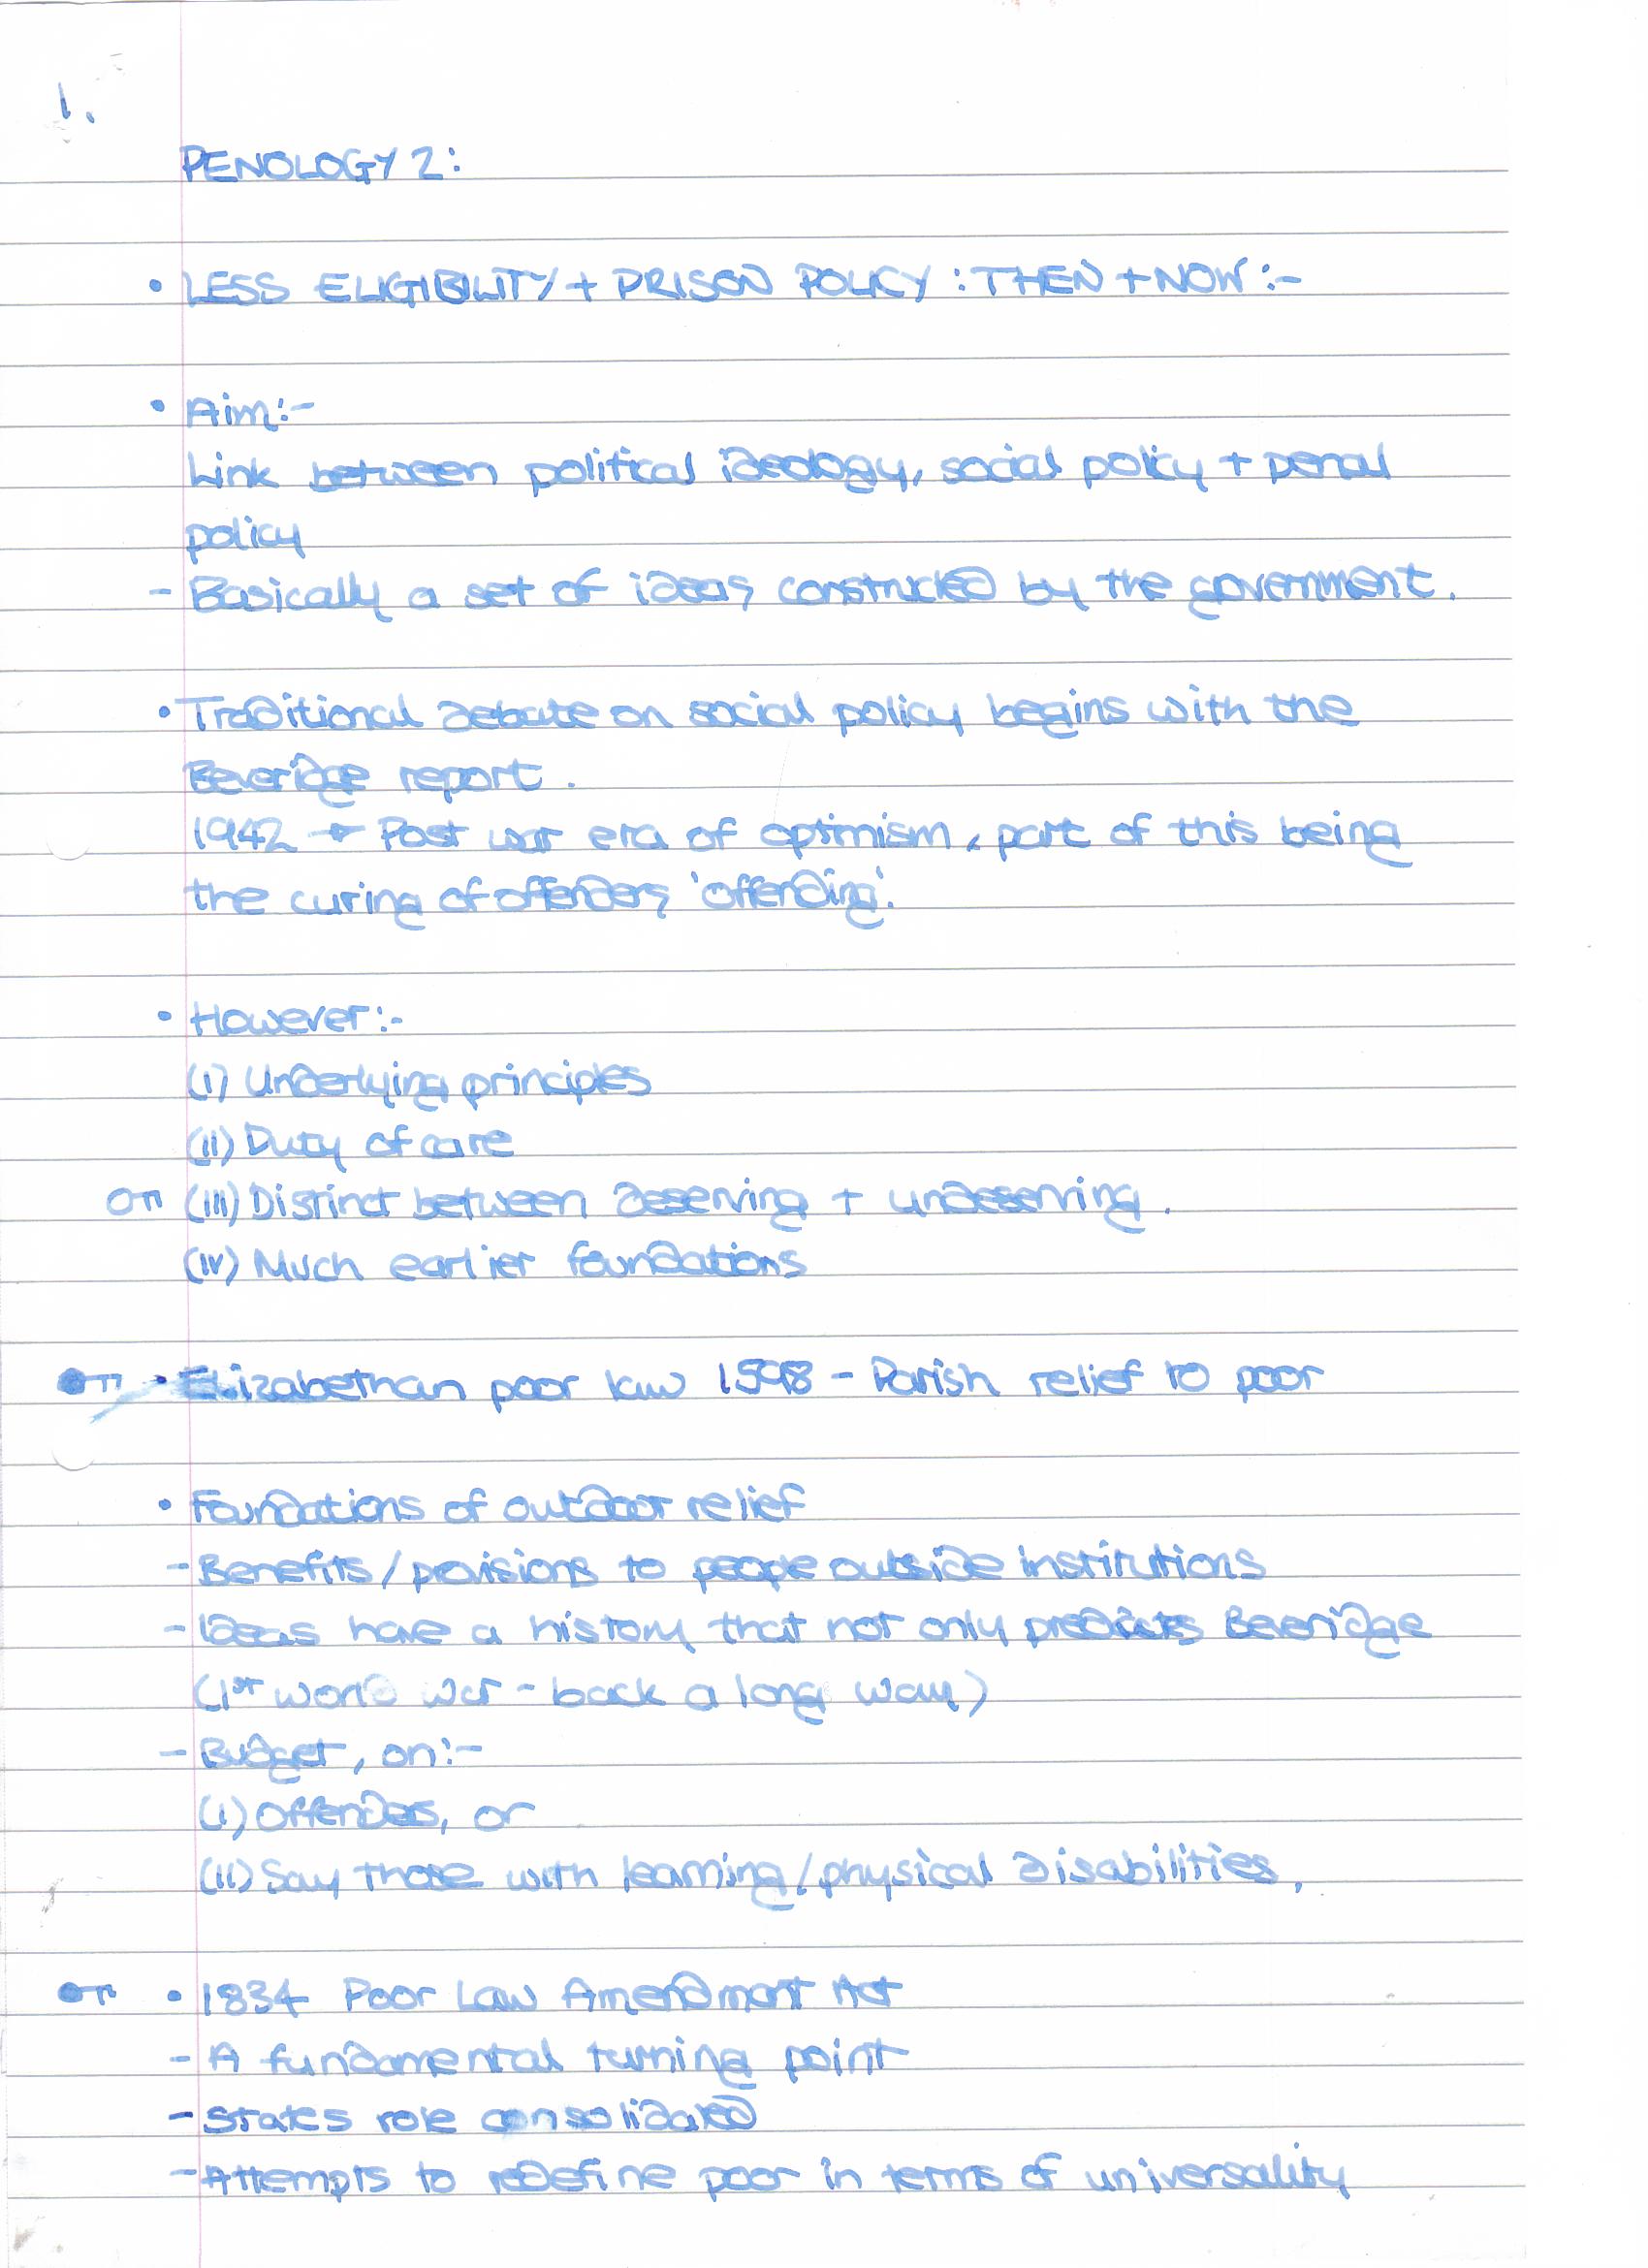 1.
PENOLOGY 2:
• LESS ELIGIBILITY + PRISON POLICY : THEN + NOW :-
• Aim:-
Link between political ideology, social policy + penal
policy
- Basically a set of ideas constructed by the government.
• Traditional debate on social policy begins with the
Beveridge report.
1942 → Post war era of optimism, part of this being
the curing of offenders 'offending'.
• However:-
(i) Underlying principles
(ii) Duty of care
(iii) Distinct between deserving + undeserving.
(iv) Much earlier foundations
• Elizabethan poor law 1598 - Parish relief to poor
• Foundations of outdoor relief
- Benefits / provisions to people outside institutions
- Ideas have a history that not only predicts Beveridge
(1st world war - back a long way)
- Budget, on:-
(i) Offenders, or
(ii) Say those with learning/physical disabilities,
• 1834 Poor Law Amendment Act
- A fundamental turning point
- States role consolidated
- Attempts to redefine poor in terms of universality